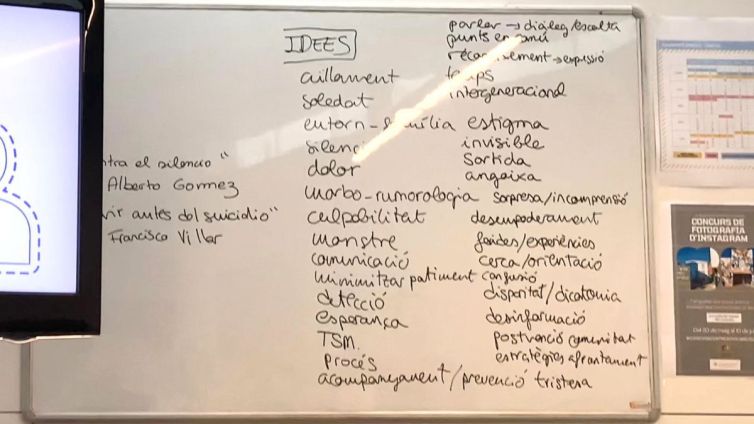 IDEES
aïllament
soledat
entorn-família
silenci
dolor
morbo-rumorologia
culpabilitat
monstre
comunicació
minimitzar patiment
detecció
esperança
TSM.
procés
acompanyament/prevenció
parlar → diàleg/escolta
punts en comú
→ expressió
temps
intergeneracional
estigma
invisible
sortida
angoixa
sorpresa/incomprensió
desempoderament
ferides/experiències
cerca/orientació
confusió
disparitat/dicotomia
desinformació
postvenció comunitat
estratègies afrontament
tristesa
ntra el silencio"
Alberto Gomez
vir antes del suicidio"
Francisco Villar
CONCURS DE
FOTOGRAFIA
D'INSTAGRAM